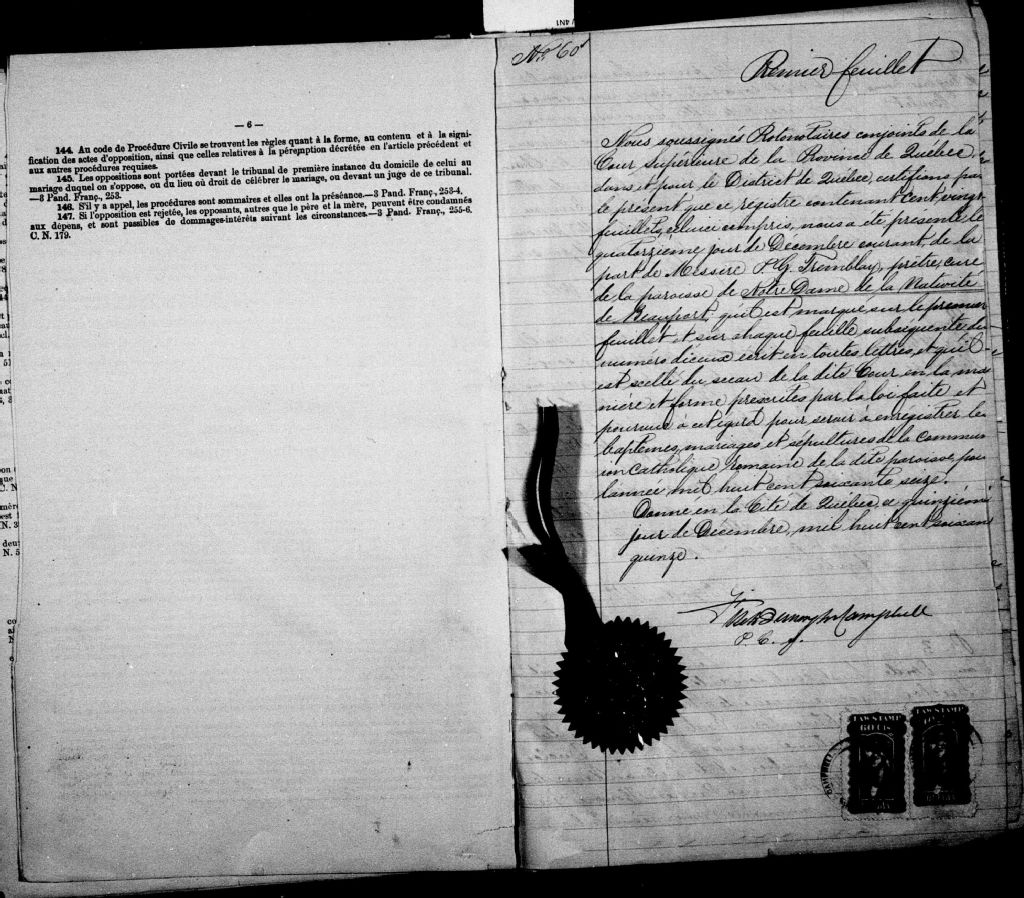 4N1
— 6 —
144. Au code de Procédure Civile se trouvent les règles quant à la forme, au contenu et à la signi-
fication des actes d'opposition, ainsi que celles relatives à la péremption décrétée en l'article précédent et
aux autres procédures requises.
145. Les oppositions sont portées devant le tribunal de première instance du domicile de celui au
mariage duquel on s'oppose, ou du lieu où droit de célébrer le mariage, ou devant un juge de ce tribunal.
—3 Pand. Franç., 253.
146. S'il y a appel, les procédures sont sommaires et elles ont la préséance.—3 Pand. Franç., 253-4.
147. Si l'opposition est rejetée, les opposants, autres que le père et la mère, peuvent être condamnés
aux dépens, et sont passibles de dommages-intérêts suivant les circonstances.—3 Pand. Franç., 255-6.
C. N. 179.
No. 60
Premier feuillet
Nous soussignés Protonotaires conjoints de la
Cour Supérieure de la Province de Québec,
dans et pour le District de Québec, certifions par
le présent que ce registre contenant cent vingt
feuillets, celui-ci compris, nous a été présenté le
quatorzième jour de Décembre courant, de la
part de Messire P. G. Tremblay, prêtre, curé
de la paroisse de Notre Dame de la Nativité
de Beauport, qu'il est marqué sur le premier
feuillet et sur chaque feuille subséquente du
numéro d'iceux écrit en toutes lettres, et qu'il
est scellé du sceau de la dite Cour en la ma
nière et forme prescrites par la loi faite et
pourvue à cet égard pour servir à enregistrer les
baptêmes, mariages et sépultures de la commun
ion Catholique romaine de la dite paroisse, pour
l'année mil huit cent soixante seize.
Donné en la Cité de Québec, ce quinzième
jour de Décembre, mil huit cent soixante
quinze.
Campbell
P. C. S.
LAW STAMP
LAW STAMP